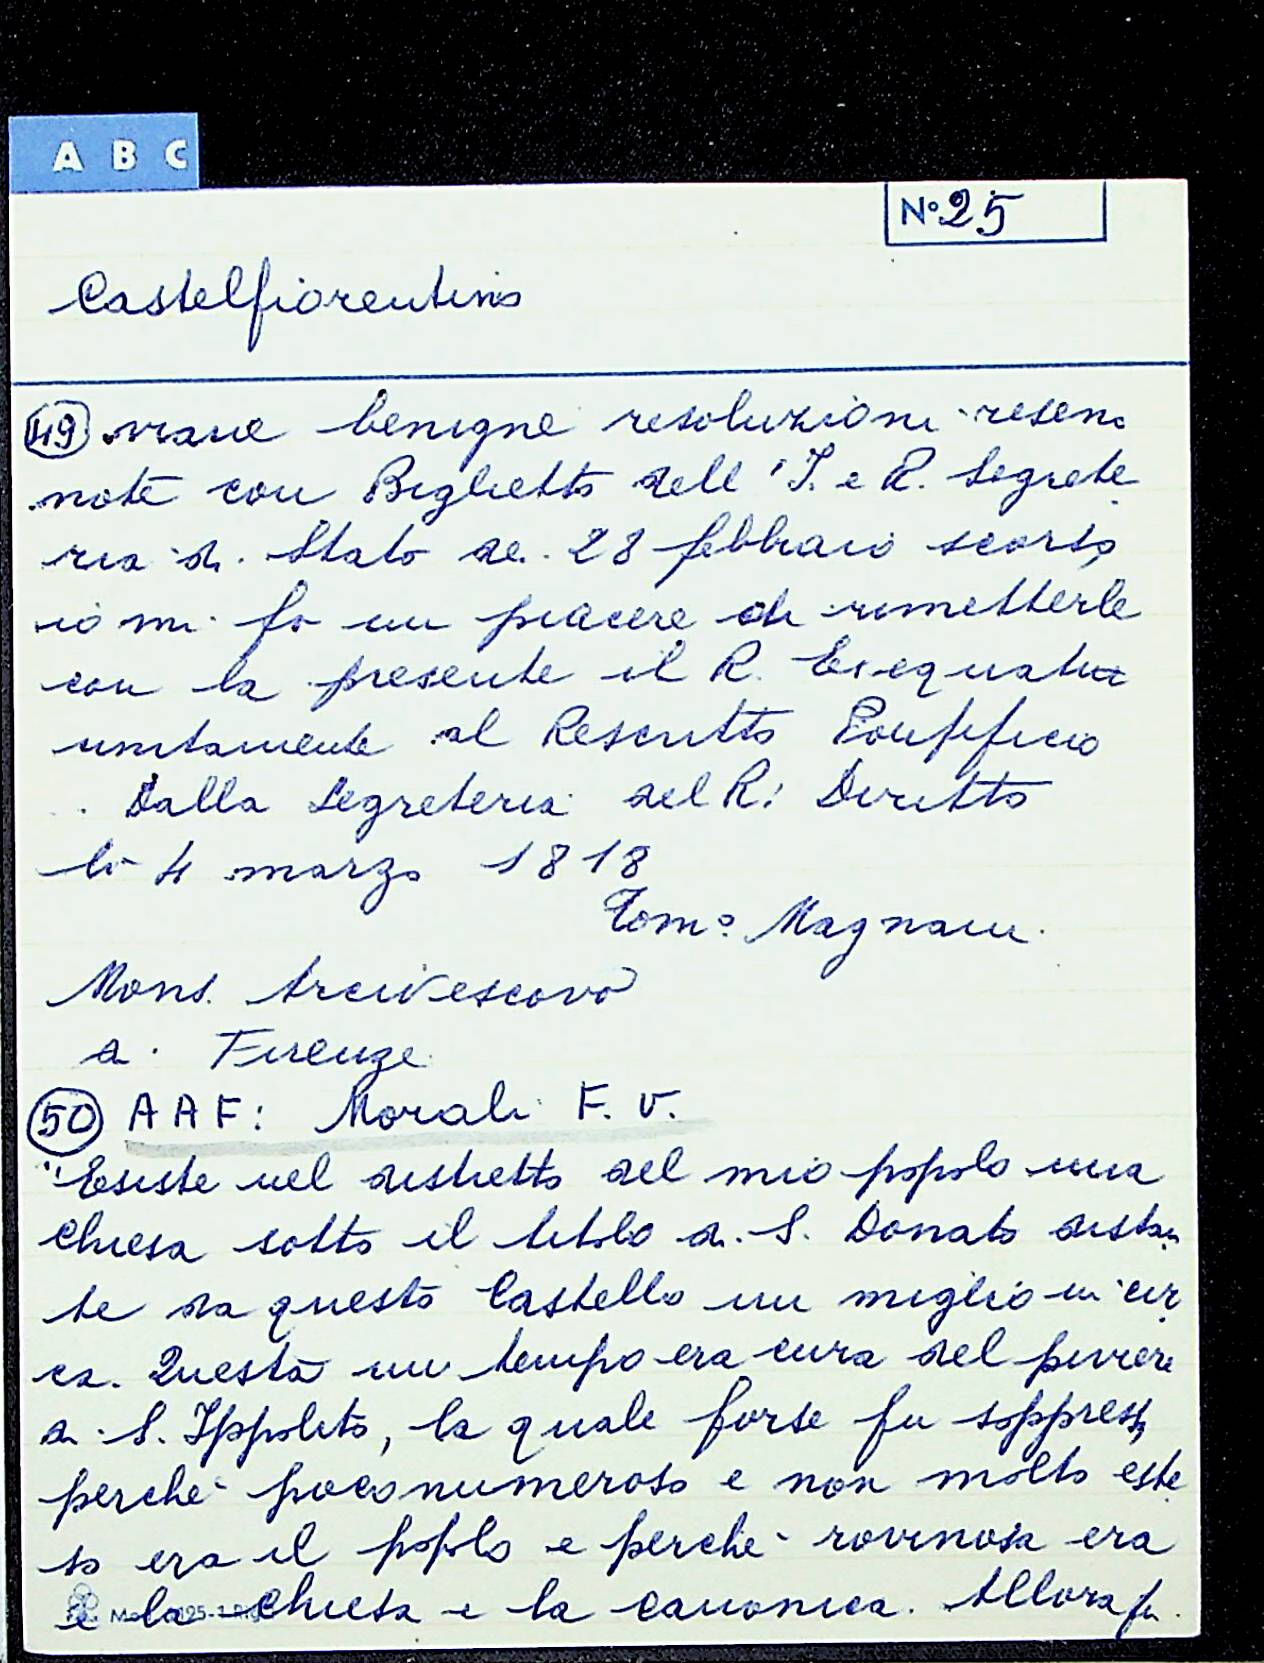 A B C
N° 25
Castelfiorentino
49 vrane benigne resoluzioni resemi
note con Biglietto dell'I. e R. Segrete
ria di Stato de. 28 febbraio scorso,
io mi fo un piacere di rimetterle
con la presente il R. Exequatur
unitamente al Rescritto Pontificio
Dalla Segreteria del R: Diritto
lì 4 marzo 1818
Tom° Magnani
Mons. Arcivescovo
a. Firenze
50 AAF: Morali F. V.
"Esiste nel distretto del mio popolo una
Chiesa sotto il titolo di S. Donato distan
te da questo Castello un miglio in cir
ca. Questa un tempo era cura del piviere
di S. Ippolito, la quale forse fu soppressa,
perchè poco numeroso e non molto este
so era il popolo e perchè rovinosa era
e la Chiesa e la canonica. Allora fu